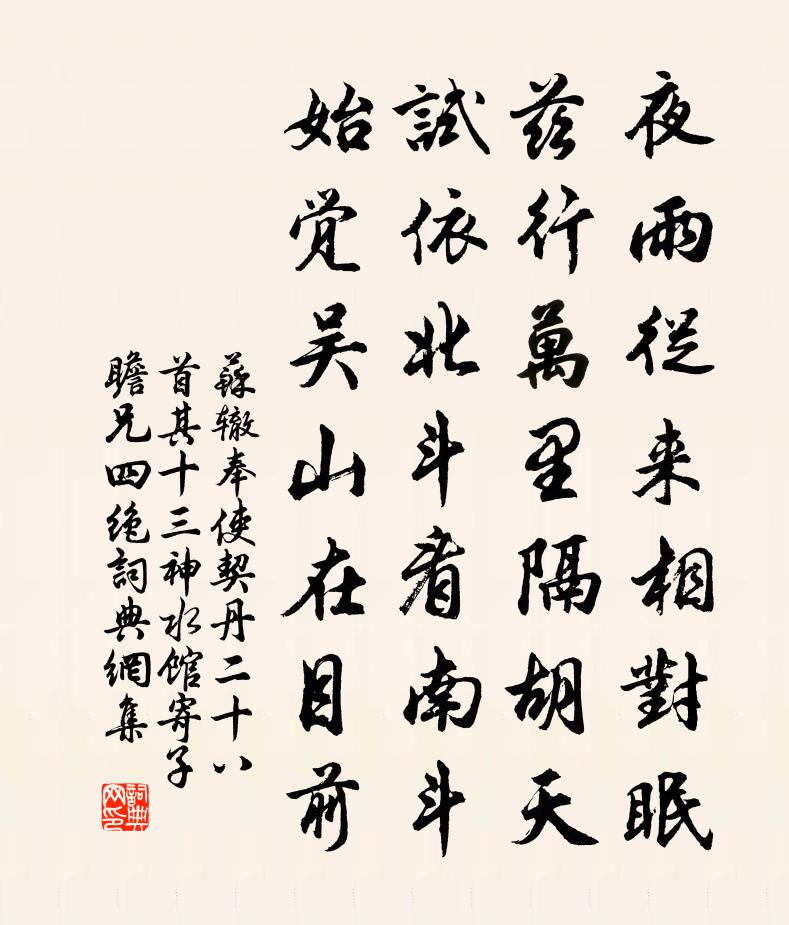 夜雨従来相對眠
兹行萬里隔胡天
試依北斗看南斗
始覚吴山在目前
蘇辙奉使契丹二十八
首其十三神水館寄子
瞻兄四绝詞典網集
詞典
网印